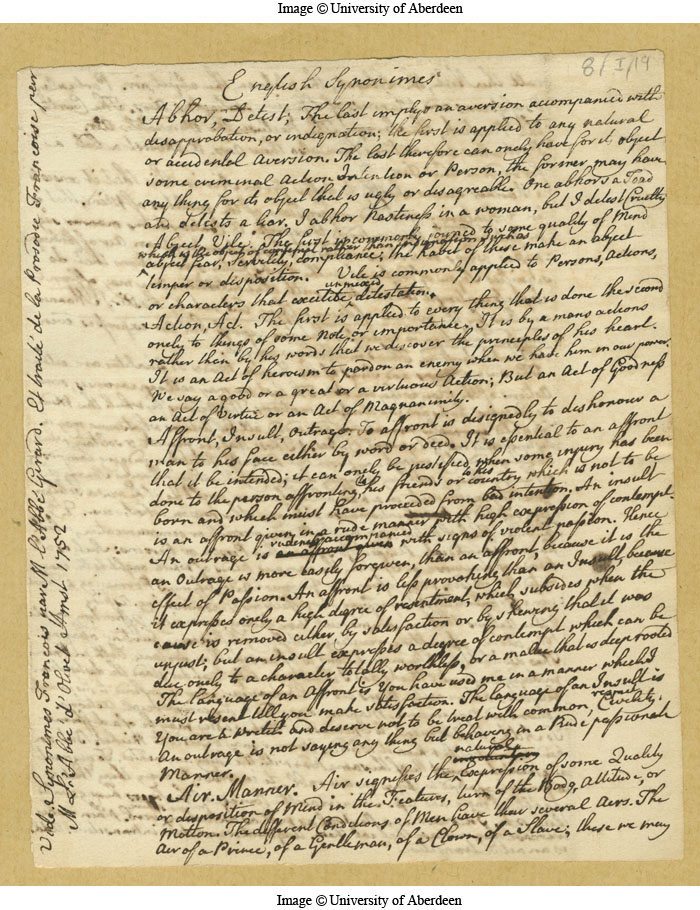 Image © University of Aberdeen
8/I/19
English Synonimes
Abhor, Detest, The last implys an aversion accompanied with
disapprobation, or indignation; the first is applied to any natural
or accidental Aversion. The last therefore can onely have for it object
some criminal Action Intention or Person, the former may have
any thing for its object that is ugly or disagreable. One abhors a Toad
and detests a liar, I abhor Nastiness in a woman, but I detest Cruelty
Abject, Vile. The first is commonly joyned to some quality of Mind
which is the object of contempt rather than indignation such as
abject fear, servility, compliance; the habit of these make an abject
temper or disposition. Vile is commonly applied to Persons, Actions,
unmixed
or characters that excite detestation.
Action, Act. The first is applied to every thing that is done the second
onely to things of some Note or importance. It is by a mans actions
rather than by his words that we discover the principles of his heart.
It is an Act of heroism to pardon an enemy when we have him in our power.
We say a good or a great or a virtuous Action; But an Act of Goodness
an Act of Virtue or an Act of Magnanimity.
Affront, Insult, Outrage. To affront is designedly to dishonour a
man to his face either by word or deed. It is essential to an affront
that it be intended; it can onely be justified when some injury has been
done to the person affronting, his friends or country which is not to be
born and which must have proceeded from bad intention. An insult
is an affront given in a rude manner with high expression of contempt.
rudeness accompanied
An outrage is an affront given with signs of violent passion. Hence
an Outrage is more easily forgiven, than an affront, because it is the
effect of Passion. An affront is less provoking than an Insult, because
it expresses only a high degree of resentment, which subsides when the
cause is removed either by satisfaction or by shewing that it was
unjust; but an insult expresses a degree of contempt which can be
due onely to a character totally worthless, or a malice that is deep rooted
The language of an Affront is You have used me in a manner which I
must resent till you make satisfaction. The language of an Insult is
You are a wretch and deserve not to be treat with common Civility.
An outrage is not saying any thing but behaving in a Rude passionate
Manner.
natural
Air. Manner. Air signifies the expression of some Quality
or disposition of Mind in the Features, turn of the Body, Attitude, or
Motion. The different Conditions of Men have their several Aers. The
Aer of a Prince, of a Gentleman, of a Clown, of a Slave; these we may
Vide Synonimes Francois par M l'Abbé Girard. Et traité de la Prosodie Francoise par
M L'Abbé d'Olivet Amst 1752
Image © University of Aberdeen